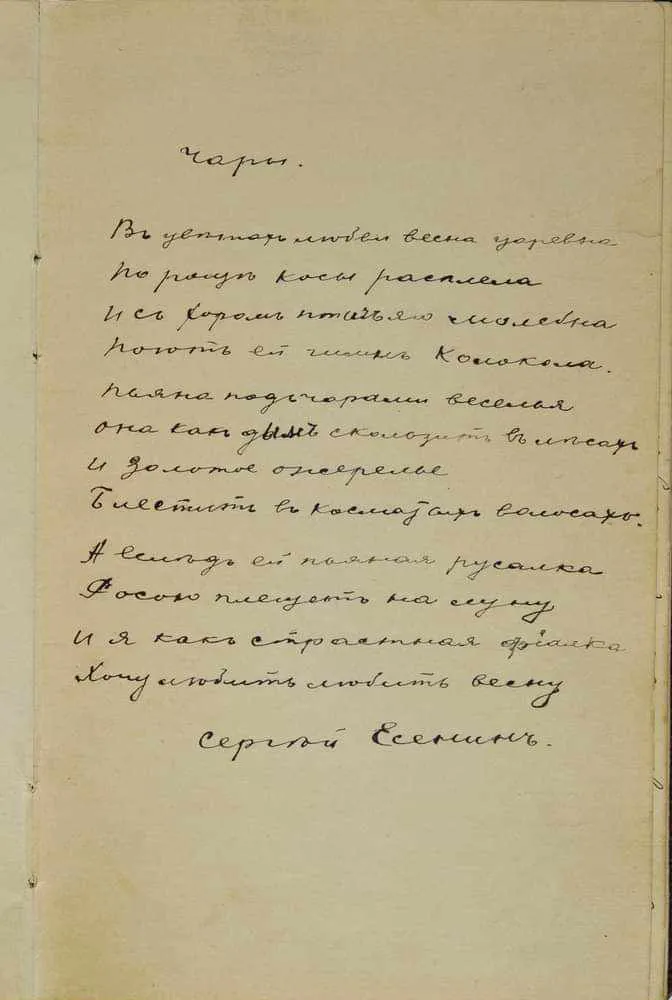 Чары.
Въ цвѣтахъ любви весна царевна
По рощѣ косы расплела
И съ хоромъ птичьяго молебна
Поютъ ей гимнъ Колокола.
Пьяна подъ чарами веселья
Она какъ дымъ скользитъ въ лѣсахъ
И золотое ожерелье
Блеститъ въ косматыхъ волосахъ.
А вслѣдъ ей пьяная русалка
Росою плещетъ на луну
И я какъ страстная фіалка
Хочу любить любить весну
Сергѣй Есенинъ.